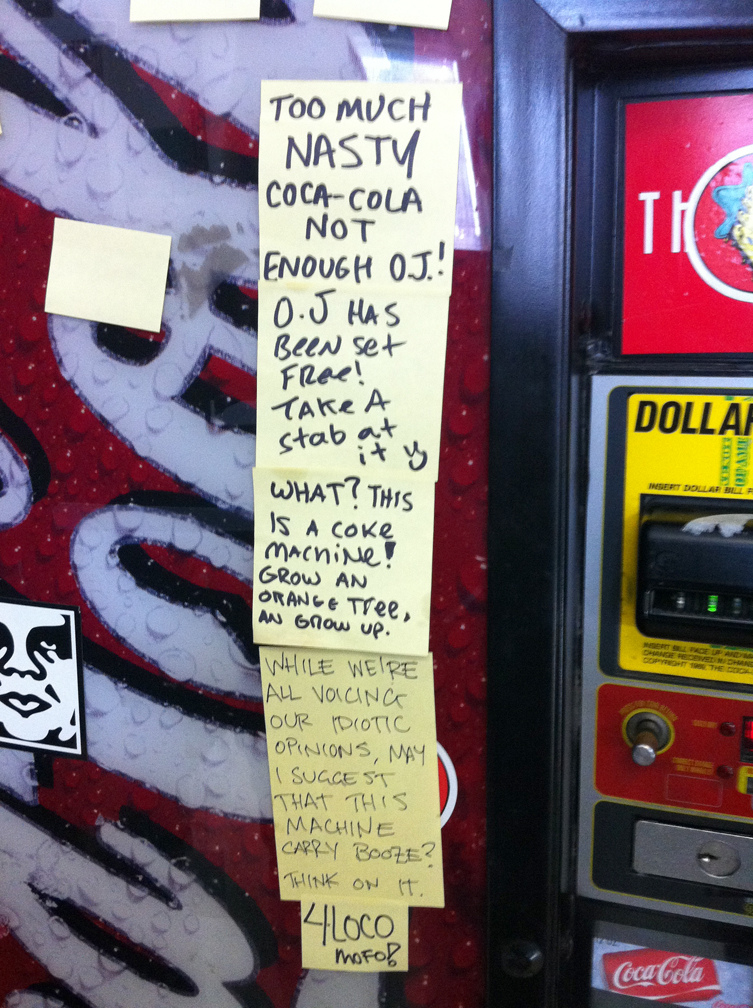 TOO MUCH
NASTY
COCA-COLA
NOT
ENOUGH O.J.!
O.J HAS
BEEN Set
FREE!
TAKE A
stab at
it
WHAT? THIS
IS A COKE
MACHINE!
GROW AN
ORANGE TREE,
AN GROW UP.
WHILE WE'RE
ALL VOICING
OUR IDIOTIC
OPINIONS, MAY
I SUGGEST
THAT THIS
MACHINE
CARRY BOOZE?
THINK ON IT.
4LOCO
MOFO!
TH
DOLLAR
INSERT DOLLAR BILL
INSERT BILL FACE UP AND
CHANGE RECEIVED IN
COPYRIGHT
Coca-Cola